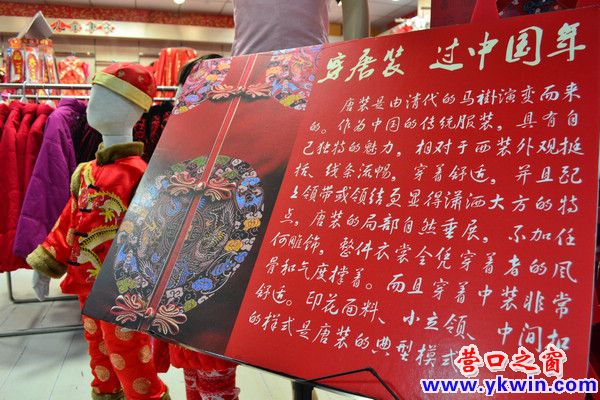 穿唐装 过中国年
唐装是由清代的马褂演变而来
的。作为中国的传统服装，具有自
己独特的魅力，相对于西装外观挺
括、线条流畅，穿着舒适，并且配
上领带或领结更显得潇洒大方的特
点，唐装的局部自然垂展，不加任
何雕饰，整件衣裳全凭穿着者的风
骨和气度撑着。而且穿着中装非常
舒适。印花面料、小立领、中间扣
的样式是唐装的典型模式
营口之窗
www.ykwin.com